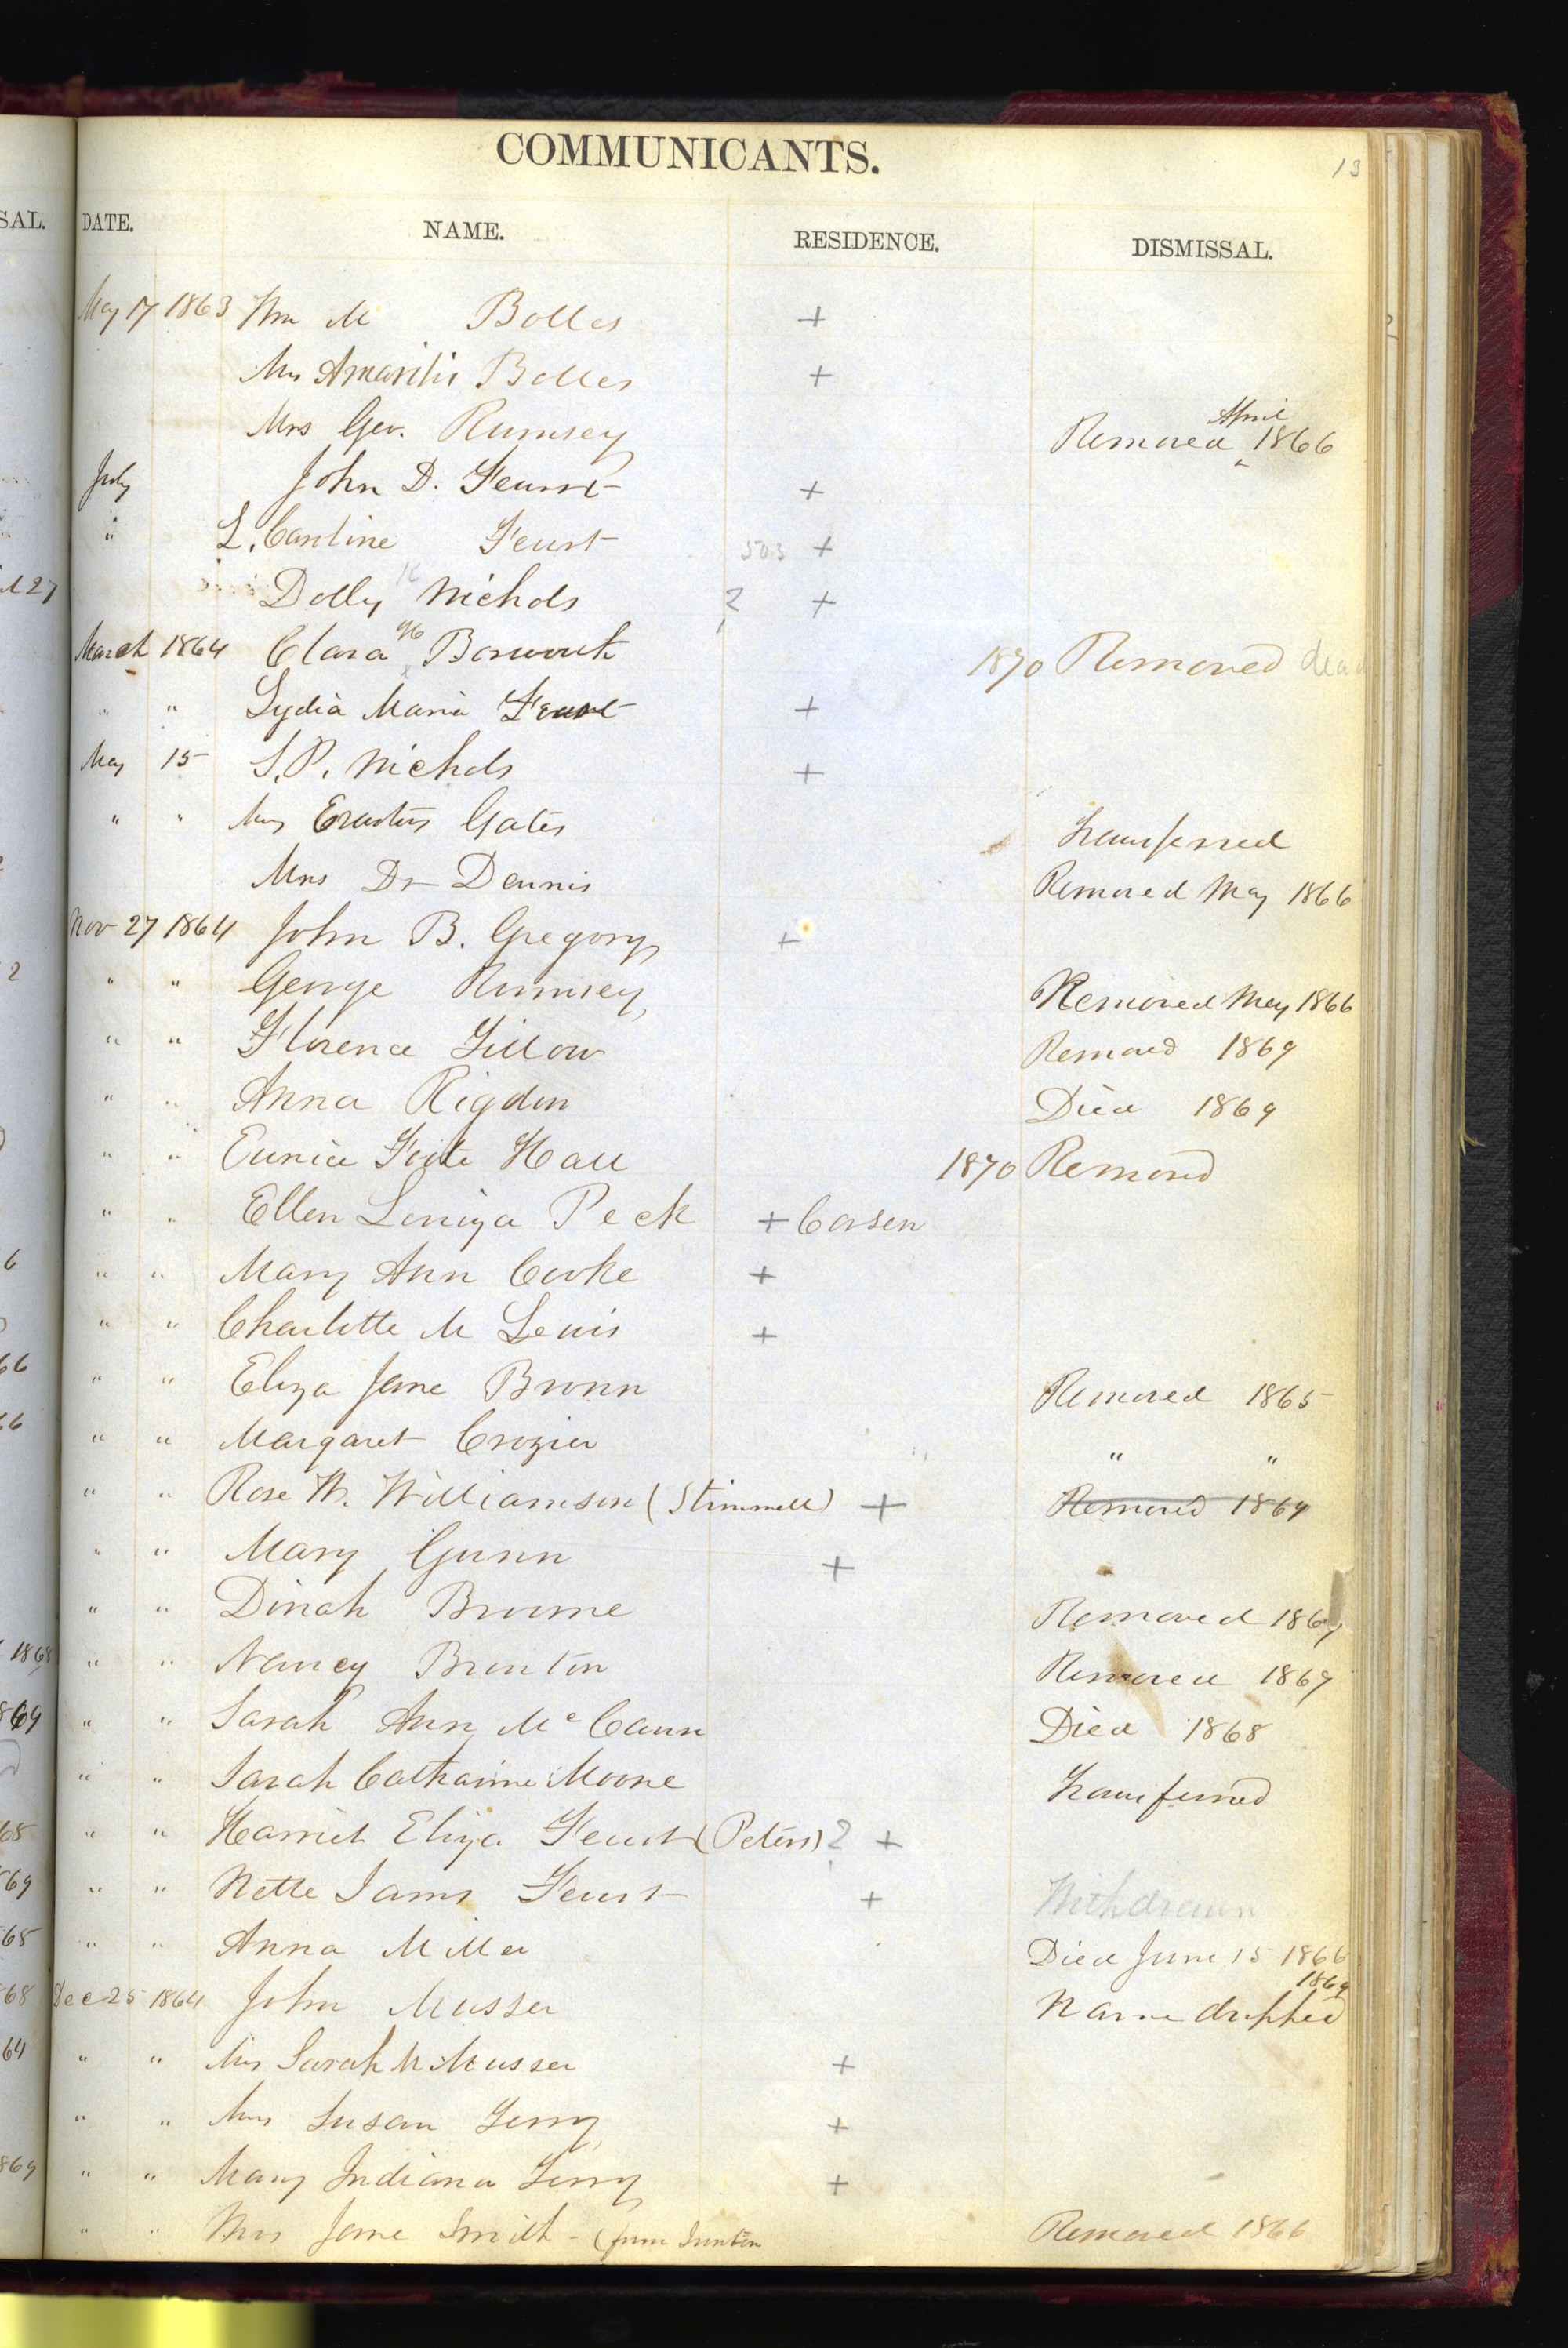 COMMUNICANTS.
13
SAL. DATE. NAME. RESIDENCE. DISMISSAL.
May 17 1863 Wm M Bolles +
Mrs Amarilis Bolles +
Mrs Geo. Rumsey Removed April 1866
July John D. Feurt +
" L. Caroline Feurt 503 +
Dolly K Nichols ? +
March 1864 Clara Bosworth 1870 Removed dead
" " Lydia Maria Feurt +
May 15 S. P. Nichols +
" " Mrs Erastus Gates Transferred
Mrs Dr Dennis Removed May 1866
Nov 27 1864 John B. Gregory +
" " George Rumsey Removed May 1866
" " Florence Gillow Removed 1869
" " Anna Rigdon Died 1869
" " Eunice Foote Hall 1870 Removed
" " Ellen Louiza Peck + Corsen
" " Mary Ann Cooke +
" " Charlotte M Lewis +
" " Eliza Jane Brown Removed 1865
" " Margaret Crozier " "
" " Rose W. Williamson (Stimmell) + Removed 1869
" " Mary Gunn +
" " Dinah Broome Removed 1869
" " Nancy Brunton Removed 1869
" " Sarah Ann McCann Died 1868
" " Sarah Catharine Moore Transferred
" " Harriet Eliza Feurt (Peters) ? +
" " Nette Iams Feurt + Withdrawn
" " Anna Miller Died June 15 1866
Dec 25 1864 John Musser Name dropped 1869
" " Mrs Sarah M Musser +
" " Mrs Susan Terry +
" " Mary Indiana Terry +
" " Mrs Jane Smith - (from Ironton Removed 1866